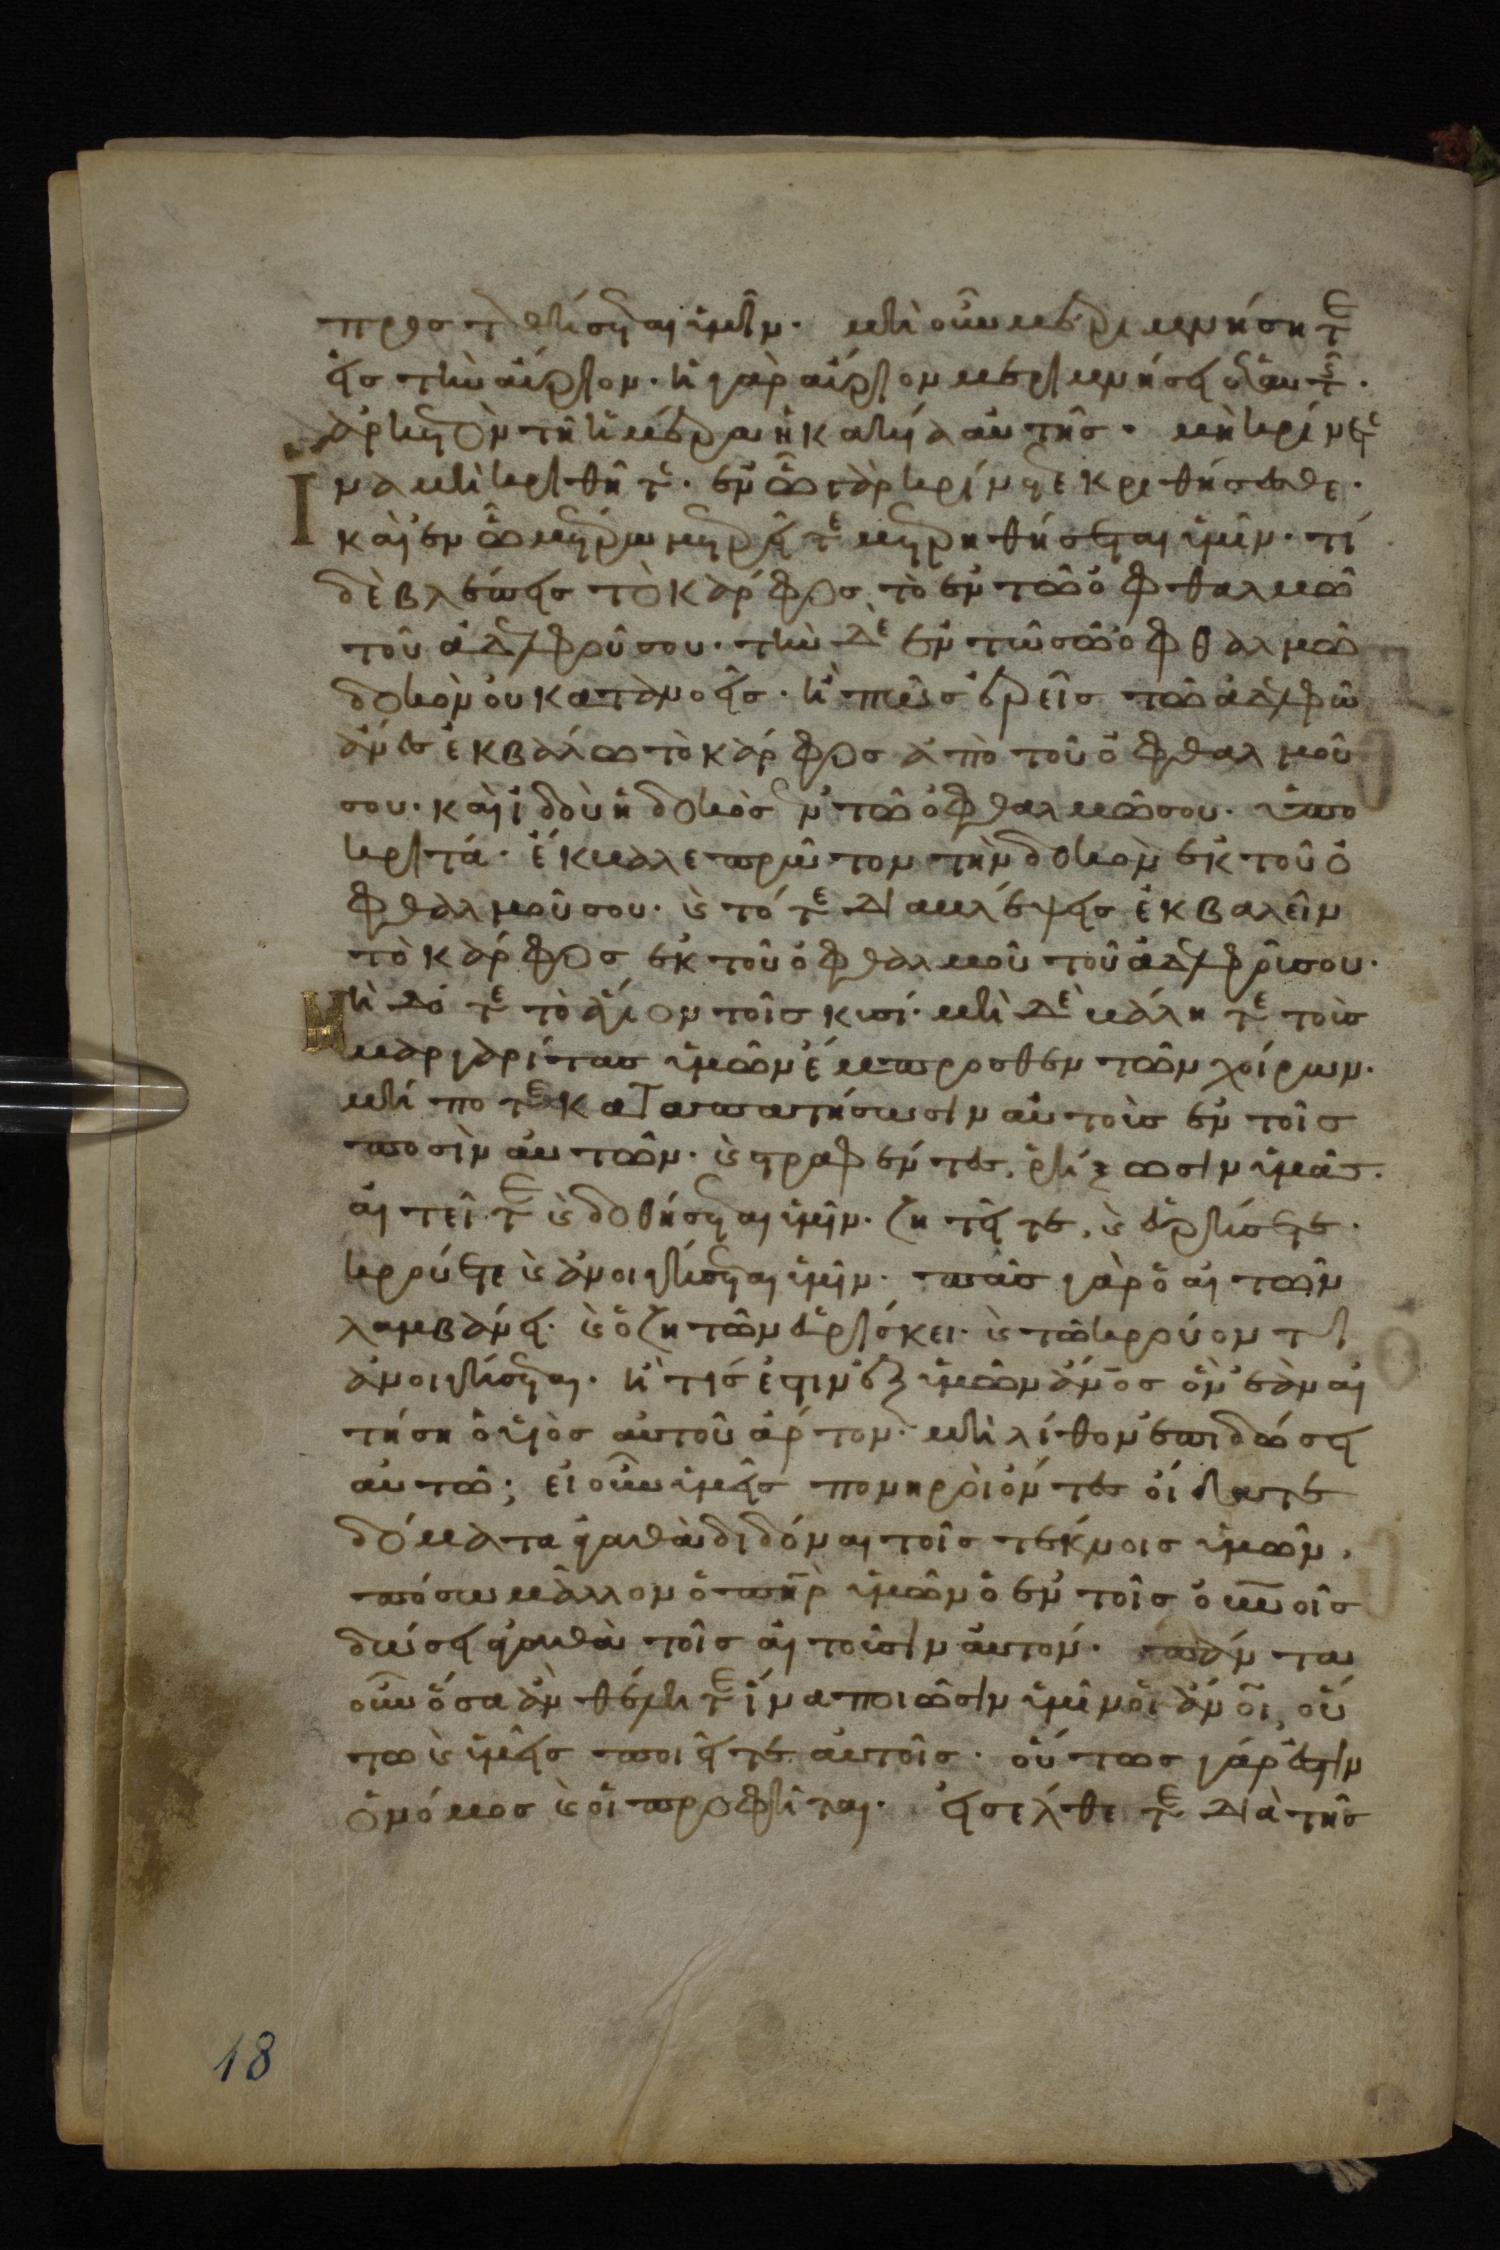 προστεθήσεται ὑμῖν. μὴ οὖν μεριμνήσητε
εἰς τὴν αὔριον. ἡ γὰρ αὔριον μεριμνήσει ἑαυτῆς.
ἀρκετὸν τῆ ἡμέρα ἡ κακία αὐτῆς. μὴ κρίνετε
ἵνα μὴ κριθῆτε. ἐν ὧ γὰρ κρίματι κρίνετε κριθήσεσθε.
καὶ ἐν ὧ μέτρω μετρεῖτε μετρηθήσεται ὑμῖν. τί
δὲ βλέπεις τὸ κάρφος τὸ ἐν τῶ ὀφθαλμῶ
τοῦ ἀδελφοῦ σου. τὴν δὲ ἐν τῶ σῶ ὀφθαλμῶ
δοκὸν οὐ κατανοεῖς. ἢ πῶς ἐρεῖς τῶ ἀδελφῶ
ἄφες ἐκβάλω τὸ κάρφος ἀπὸ τοῦ ὀφθαλμοῦ
σου. καὶ ἰδοὺ ἡ δοκὸς ἐν τῶ ὀφθαλμῶ σου. ὑπο
κριτά. ἔκβαλε πρῶτον τὴν δοκὸν ἐκ τοῦ ὀ
φθαλμοῦ σου. καὶ τότε διαβλέψεις ἐκβαλεῖν
τὸ κάρφος ἐκ τοῦ ὀφθαλμοῦ τοῦ ἀδελφοῦ σου.
Μὴ δότε τὸ ἅγιον τοῖς κυσί. μὴ δὲ βάλητε τοὺς
μαργαρίτας ὑμῶν ἔμπροσθεν τῶν χοίρων.
μή ποτε καταπατήσωσιν αὐτοὺς ἐν τοῖς
ποσὶν αὐτῶν. καὶ στραφέντες, ῥήξωσιν ὑμᾶς.
αἰτεῖτε καὶ δοθήσεται ὑμῖν. ζητεῖτε, καὶ εὑρήσετε.
κρούετε καὶ ἀνοιγήσεται ὑμῖν. πᾶς γὰρ ὁ αἰτῶν
λαμβάνει. καὶ ὁ ζητῶν εὑρίσκει. καὶ τῶ κρούοντι
ἀνοιγήσεται. ἢ τίς ἐστιν ἐξ ὑμῶν ἄνος ὃν ἐὰν αἰ
τήση ὁ υἱὸς αὐτοῦ ἄρτον. μὴ λίθον ἐπιδώσει
αὐτῶ; εἰ οὖν ὑμεῖς πονηροὶ ὄντες οἴδατε
δόματα ἀγαθὰ διδόναι τοῖς τέκνοις ὑμῶν,
πόσω μᾶλλον ὁ πηρ ὑμῶν ὁ ἐν τοῖς οὐνοῖς
δώσει ἀγαθὰ τοῖς αἰτοῦσιν αὐτόν. πάντα
οὖν ὅσα ἂν θέλητε ἵνα ποιῶσιν ὑμῖν οἱ ἄνοι, οὕ
τω καὶ ὑμεῖς ποιεῖτε αὐτοῖς. οὕτως γάρ ἐστιν
ὁ νόμος καὶ οἱ προφῆται. εἰσέλθετε διὰ τῆς
18